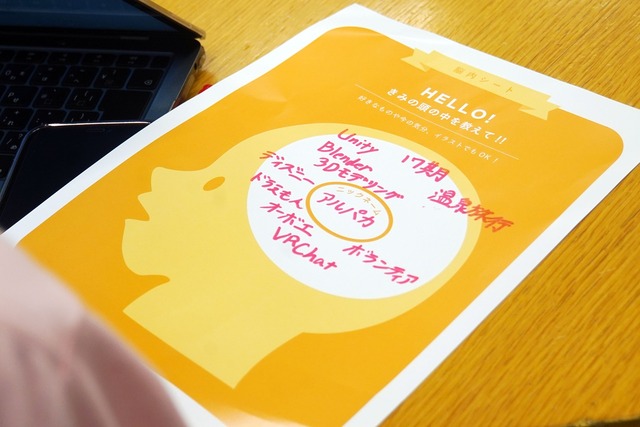 脳内シート
HELLO!
きみの頭の中を教えて!!
好きなものや今の気分、イラストでもOK!
Unity
Blender
3Dモデリング
ディズニー
ドラえもん
オーボエ
VRChat
17期
温泉旅行
ニックネーム
アルパカ
ボランティア